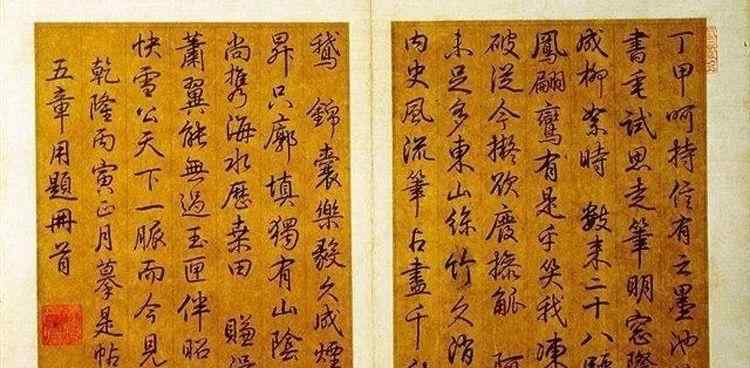 丁甲呵持信有之墨池
書垂試思走筆明窓際
成柳絮時 數来二十八驪
鳳翮鸞有是乎笑我凍
破從今擬欲廢操觚
未足多東山絲竹久消
内史風流筆占盡千
鵞 錦囊樂毅久成煙
昇只廓填獨有山陰
尚携海水歷桑田 賺
蕭翼能無過玉匣伴昭
快雪公天下一脈而今見
乾隆丙寅正月摹是帖
五章用題冊首